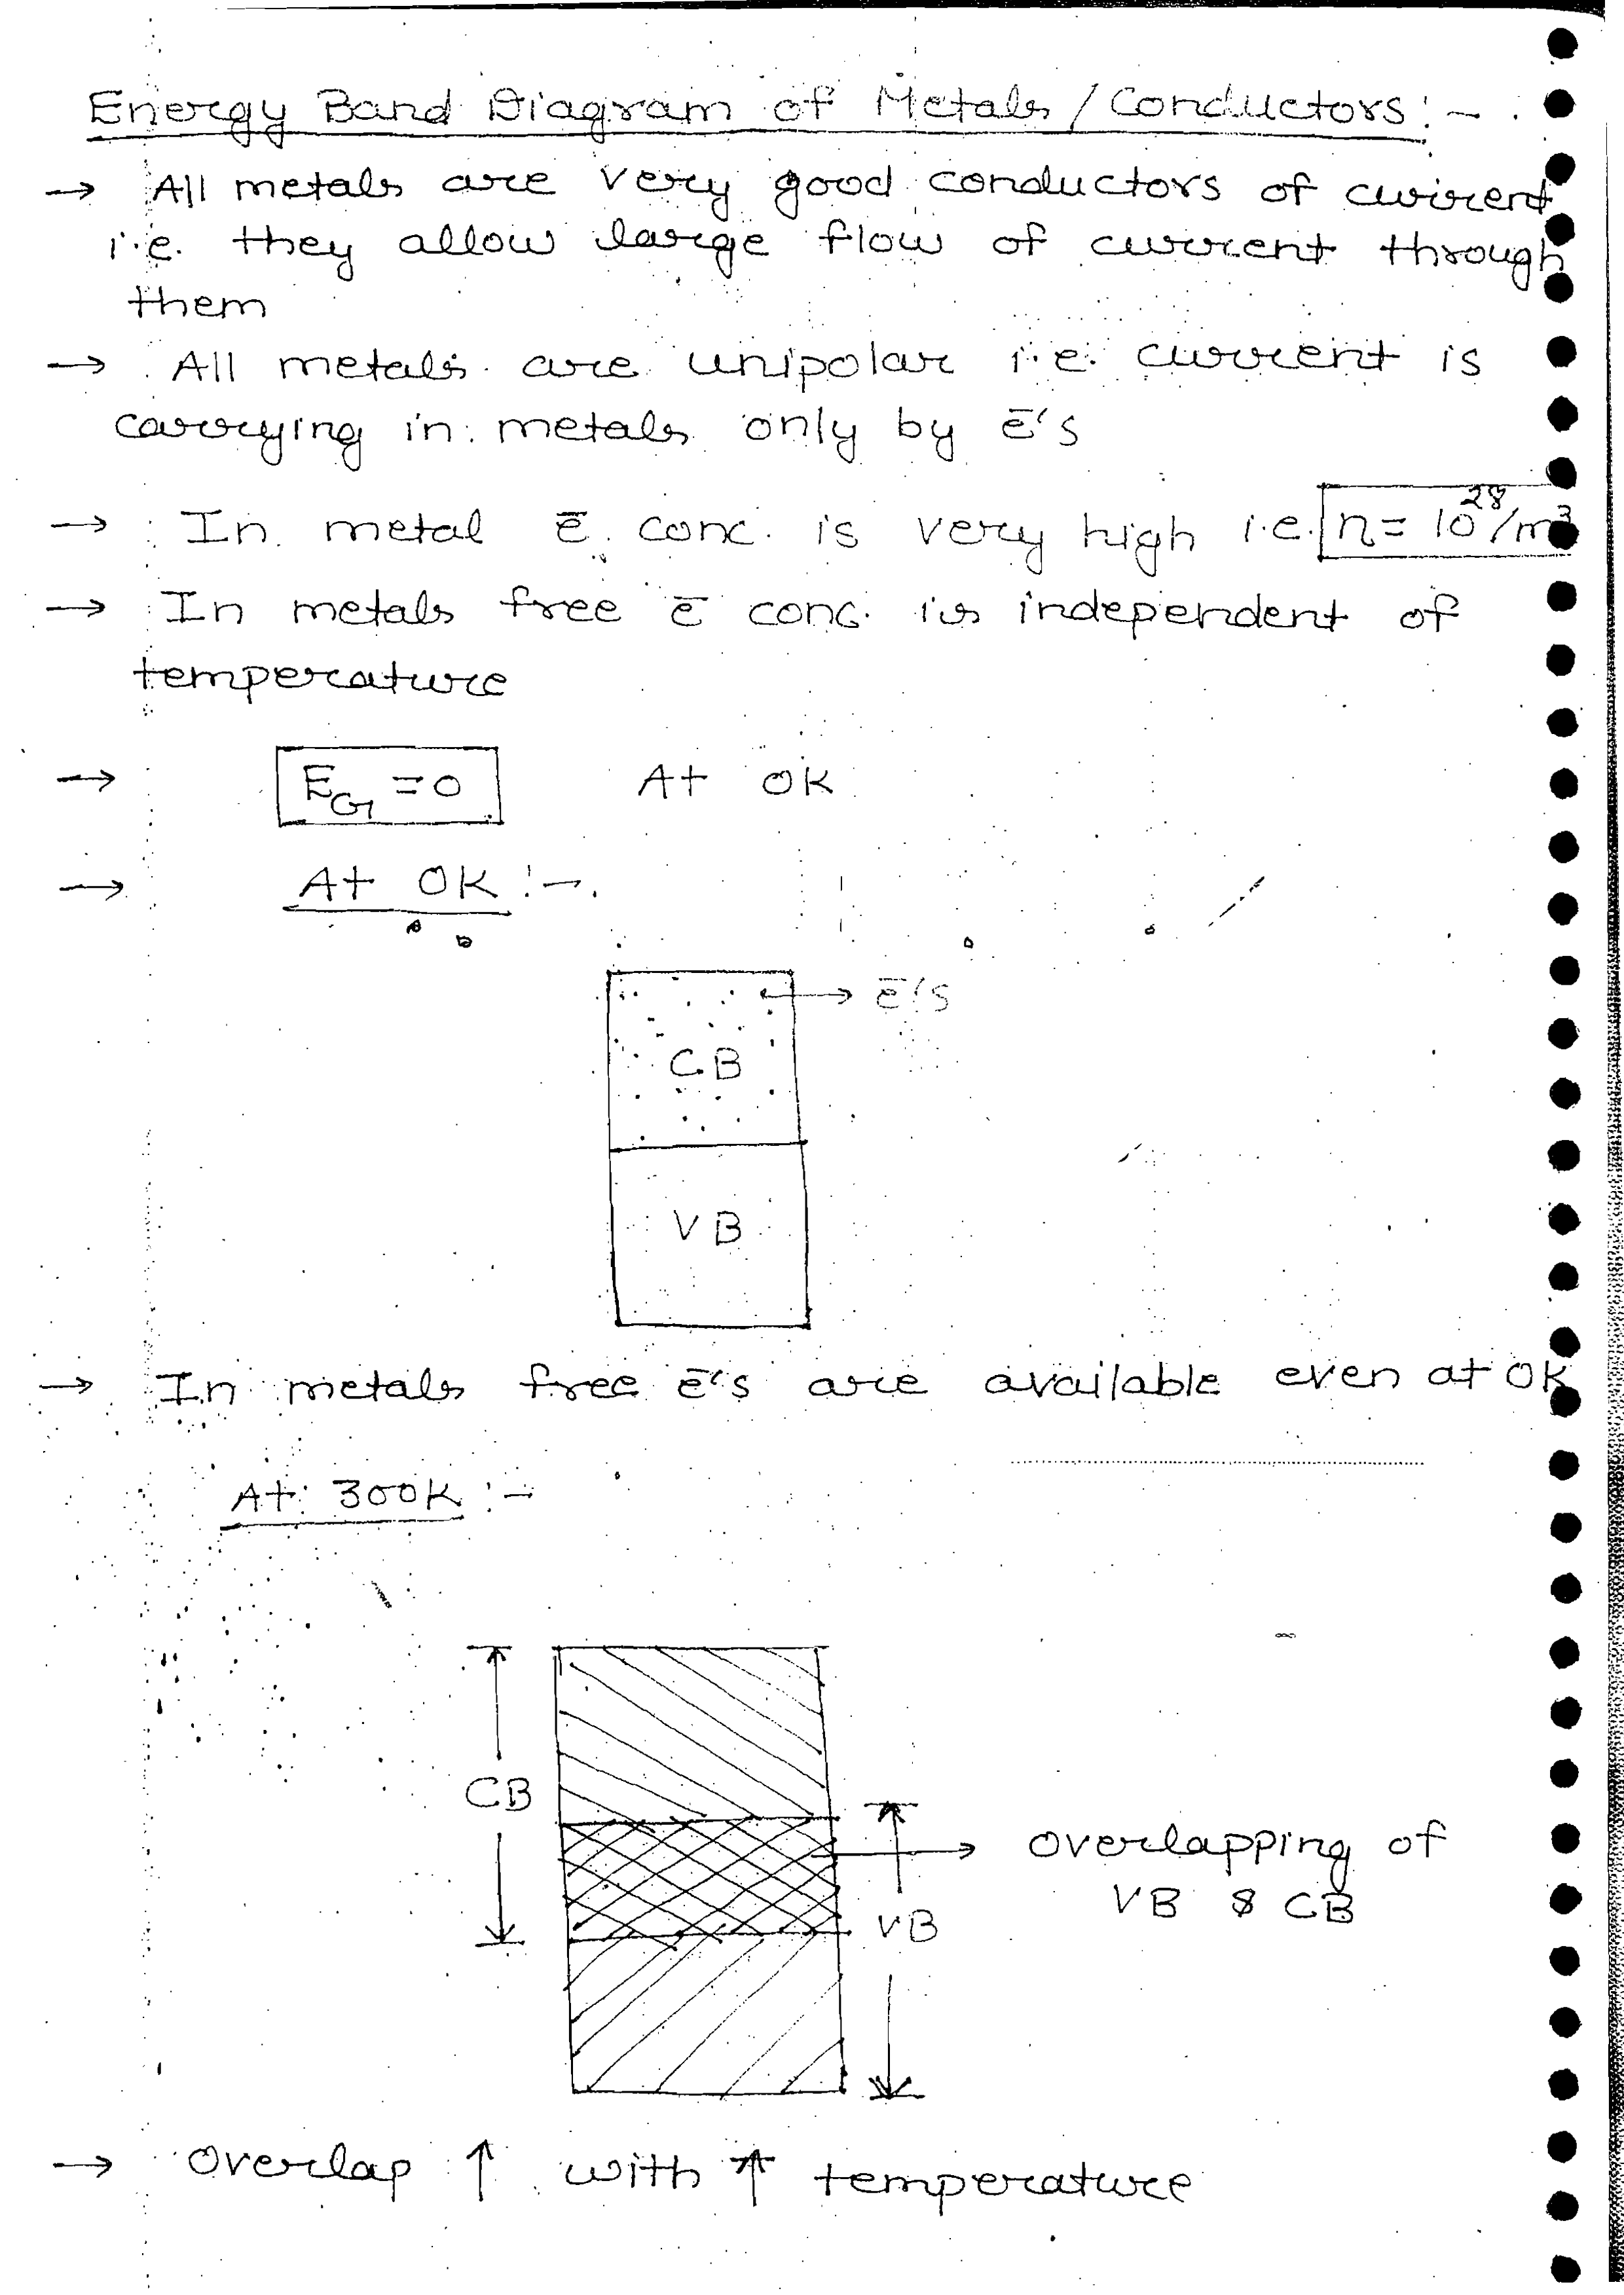 Energy Band Diagram of Metals / Conductors :-
→ All metals are very good conductors of current
i.e. they allow large flow of current through
them
→ All metals are unipolar i.e. current is
carrying in metals only by ē's
→ In metal ē conc. is very high i.e. n = 10²⁸/m³
→ In metals free ē conc. is independent of
temperature
→ E_G = 0 At 0K
→ At 0K :-
→ ē's
CB
VB
→ In metals free ē's are available even at 0K
At 300K :-
CB
→ overlapping of
VB & CB
VB
→ Overlap ↑ with ↑ temperature